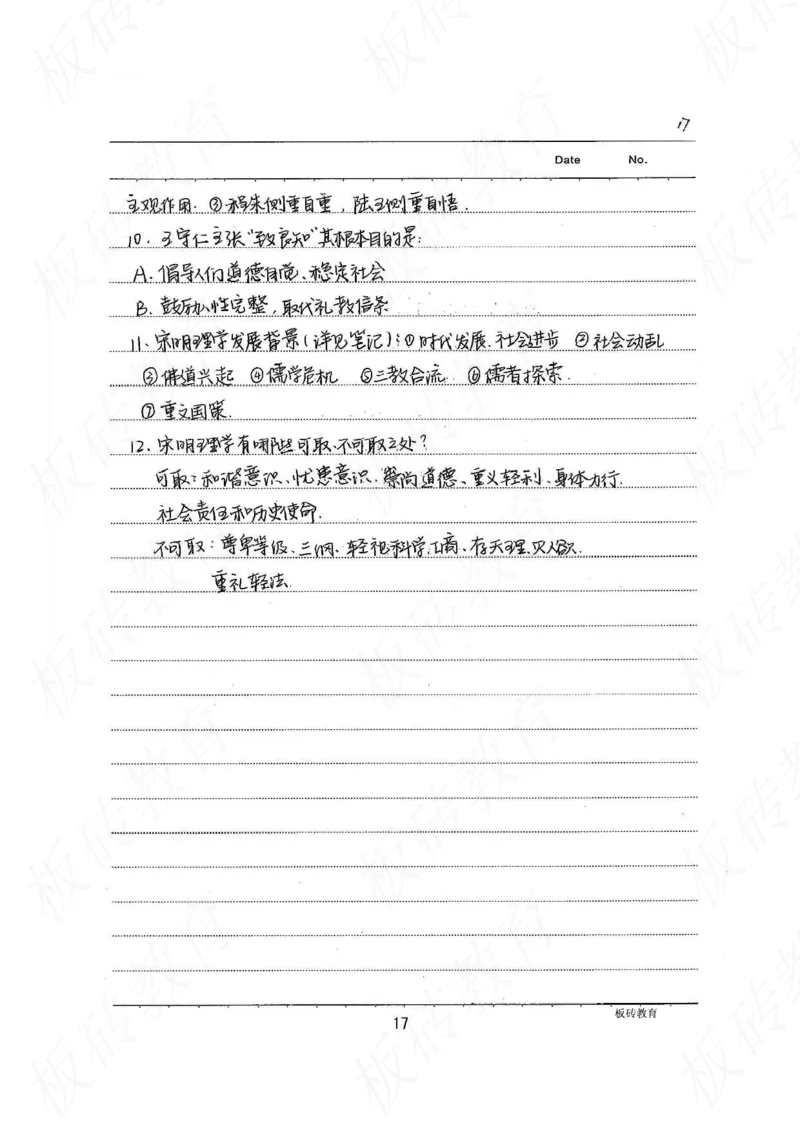 17
Date No.
主观作用. ③程朱侧重自重，陆王侧重自悟.
10. 王守仁主张"致良知"其根本目的是:
A. 倡导人们道德自觉、稳定社会
B. 鼓励人性完整，取代礼教信条
11. 宋明理学发展背景(详见笔记):①时代发展.社会进步 ②社会动乱
③佛道兴起 ④儒学危机 ⑤三教合流. ⑥儒者探索.
⑦重文国策.
12. 宋明理学有哪些可取、不可取之处?
可取:和谐意识、忧患意识.崇尚道德、重义轻利、身体力行.
社会责任和历史使命.
不可取:尊卑等级、三纲、轻视科学、工商、存天理.灭人欲.
重礼轻法.
板砖教育
17